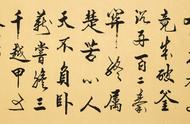 竟成破釜
沉舟百二秦
關終属
楚苦心人
天不負卧
薪嘗膽三
千越甲